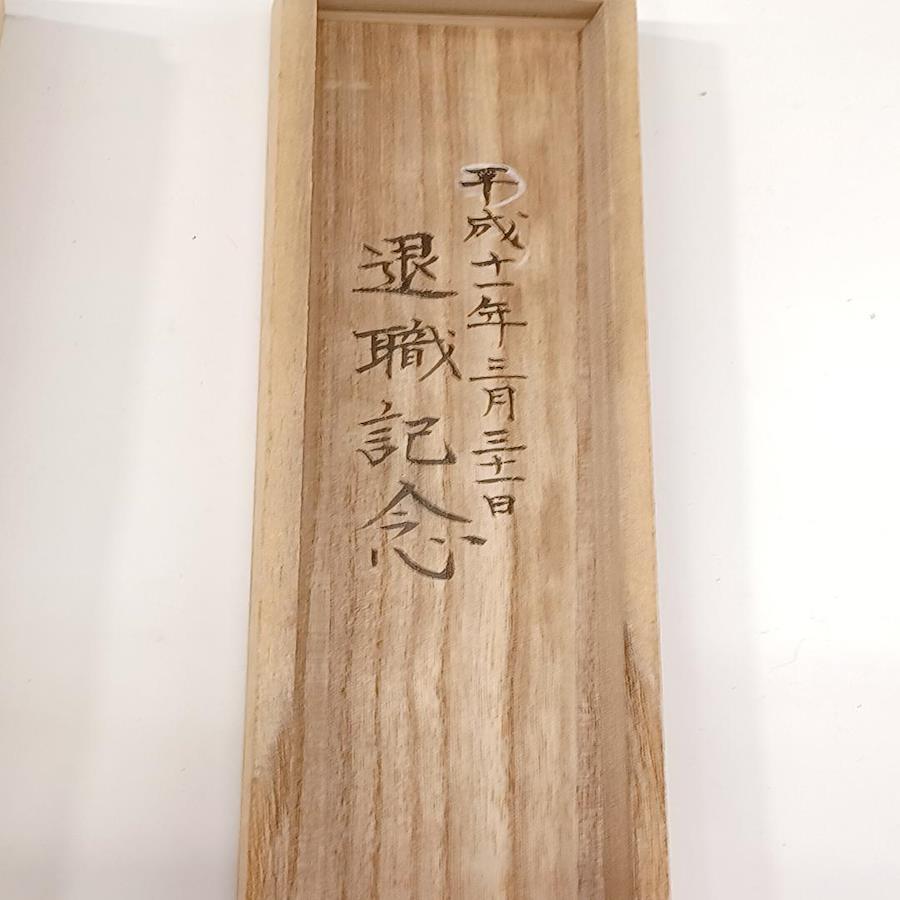 平成十一年三月三十一日
退職記念